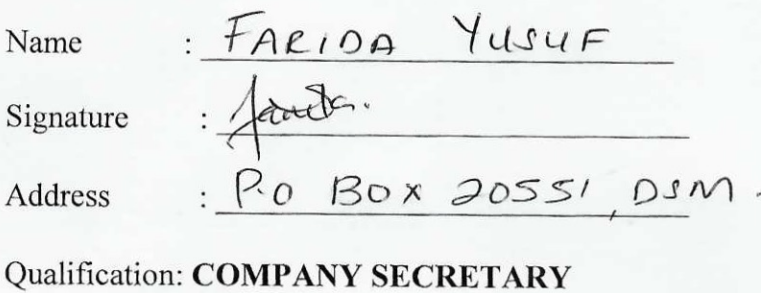 Name : FARIDA YUSUF
Signature :
Address : P.O BOX 20551, DSM.
Qualification: COMPANY SECRETARY